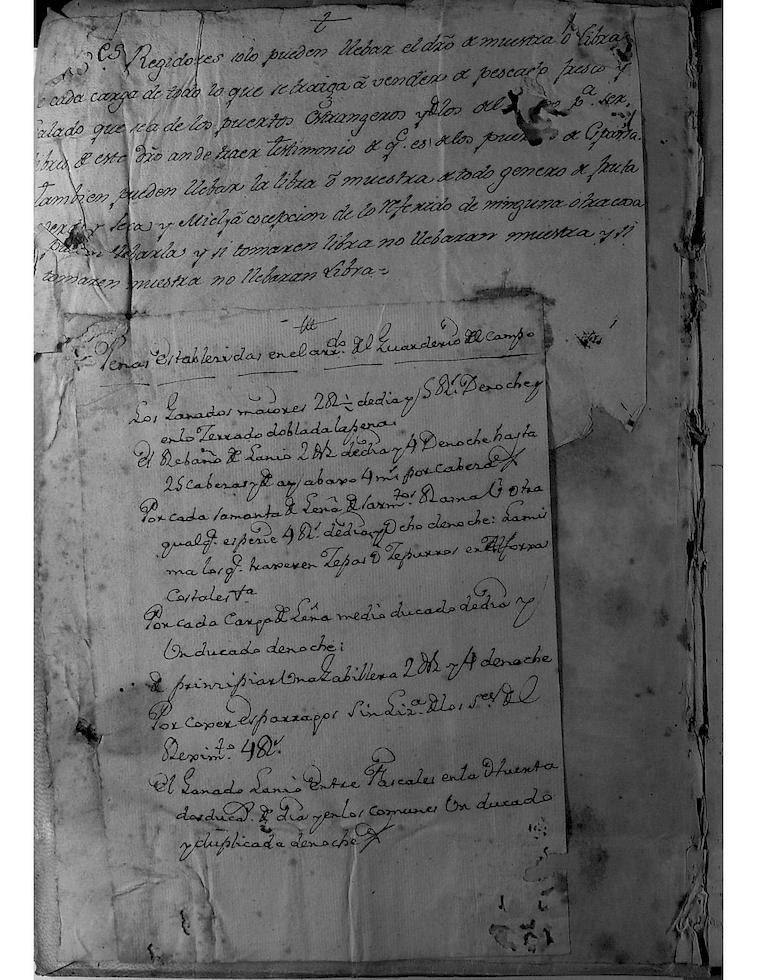 es Regidores solo pueden llebar el dro de muestra ô Libra
de cada carga de todo lo que se traiga â vender de pescado fresco y
salado que sea de los puertos estrangeros y pa. ser
libres de este dro an de traer testimonio de q.e es de los puertos de España
tambien pueden llebar la libra ô muestra de todo genero de fruta
verde y seca y Miel, â escepcion de lo referido de ninguna otra cosa
pueden llebarla y si tomaren libra no llebaran muestra y si
tomaren muestra no llebaran Libra =
Penas establezidas en el arr.do del Guarderio del campo
Los Ganados maiores 2 R.s de dia y 4 R.s De noche y
en lo Zerrado doblada la pena.
El Rebaño de Lanio 2 de dia y 4 De noche hasta
25 cabezas y de ay abaxo 4 m.s por cabeza
Por cada samanta de Leña de Sarm.tos Rama U otra
qual q.e espezie 4 R.s de dia y Ocho de noche: la mis
ma los q.e traxeren Zepas o Zepurros en Alforxas
Costales V.a
Por cada Carga de Leña medio ducado de dia y
Un ducado de noche:
de prinzipiar Una Gabillera 2 y 4 de noche
Por coxer esparragos Sin Liz.a de los S.es del
Rexim.to 4 R.s
El Ganado Lanio Entre Pascales en la Huerta
dos duca.s de dia y en los comunes Un ducado
y duplicada de noche